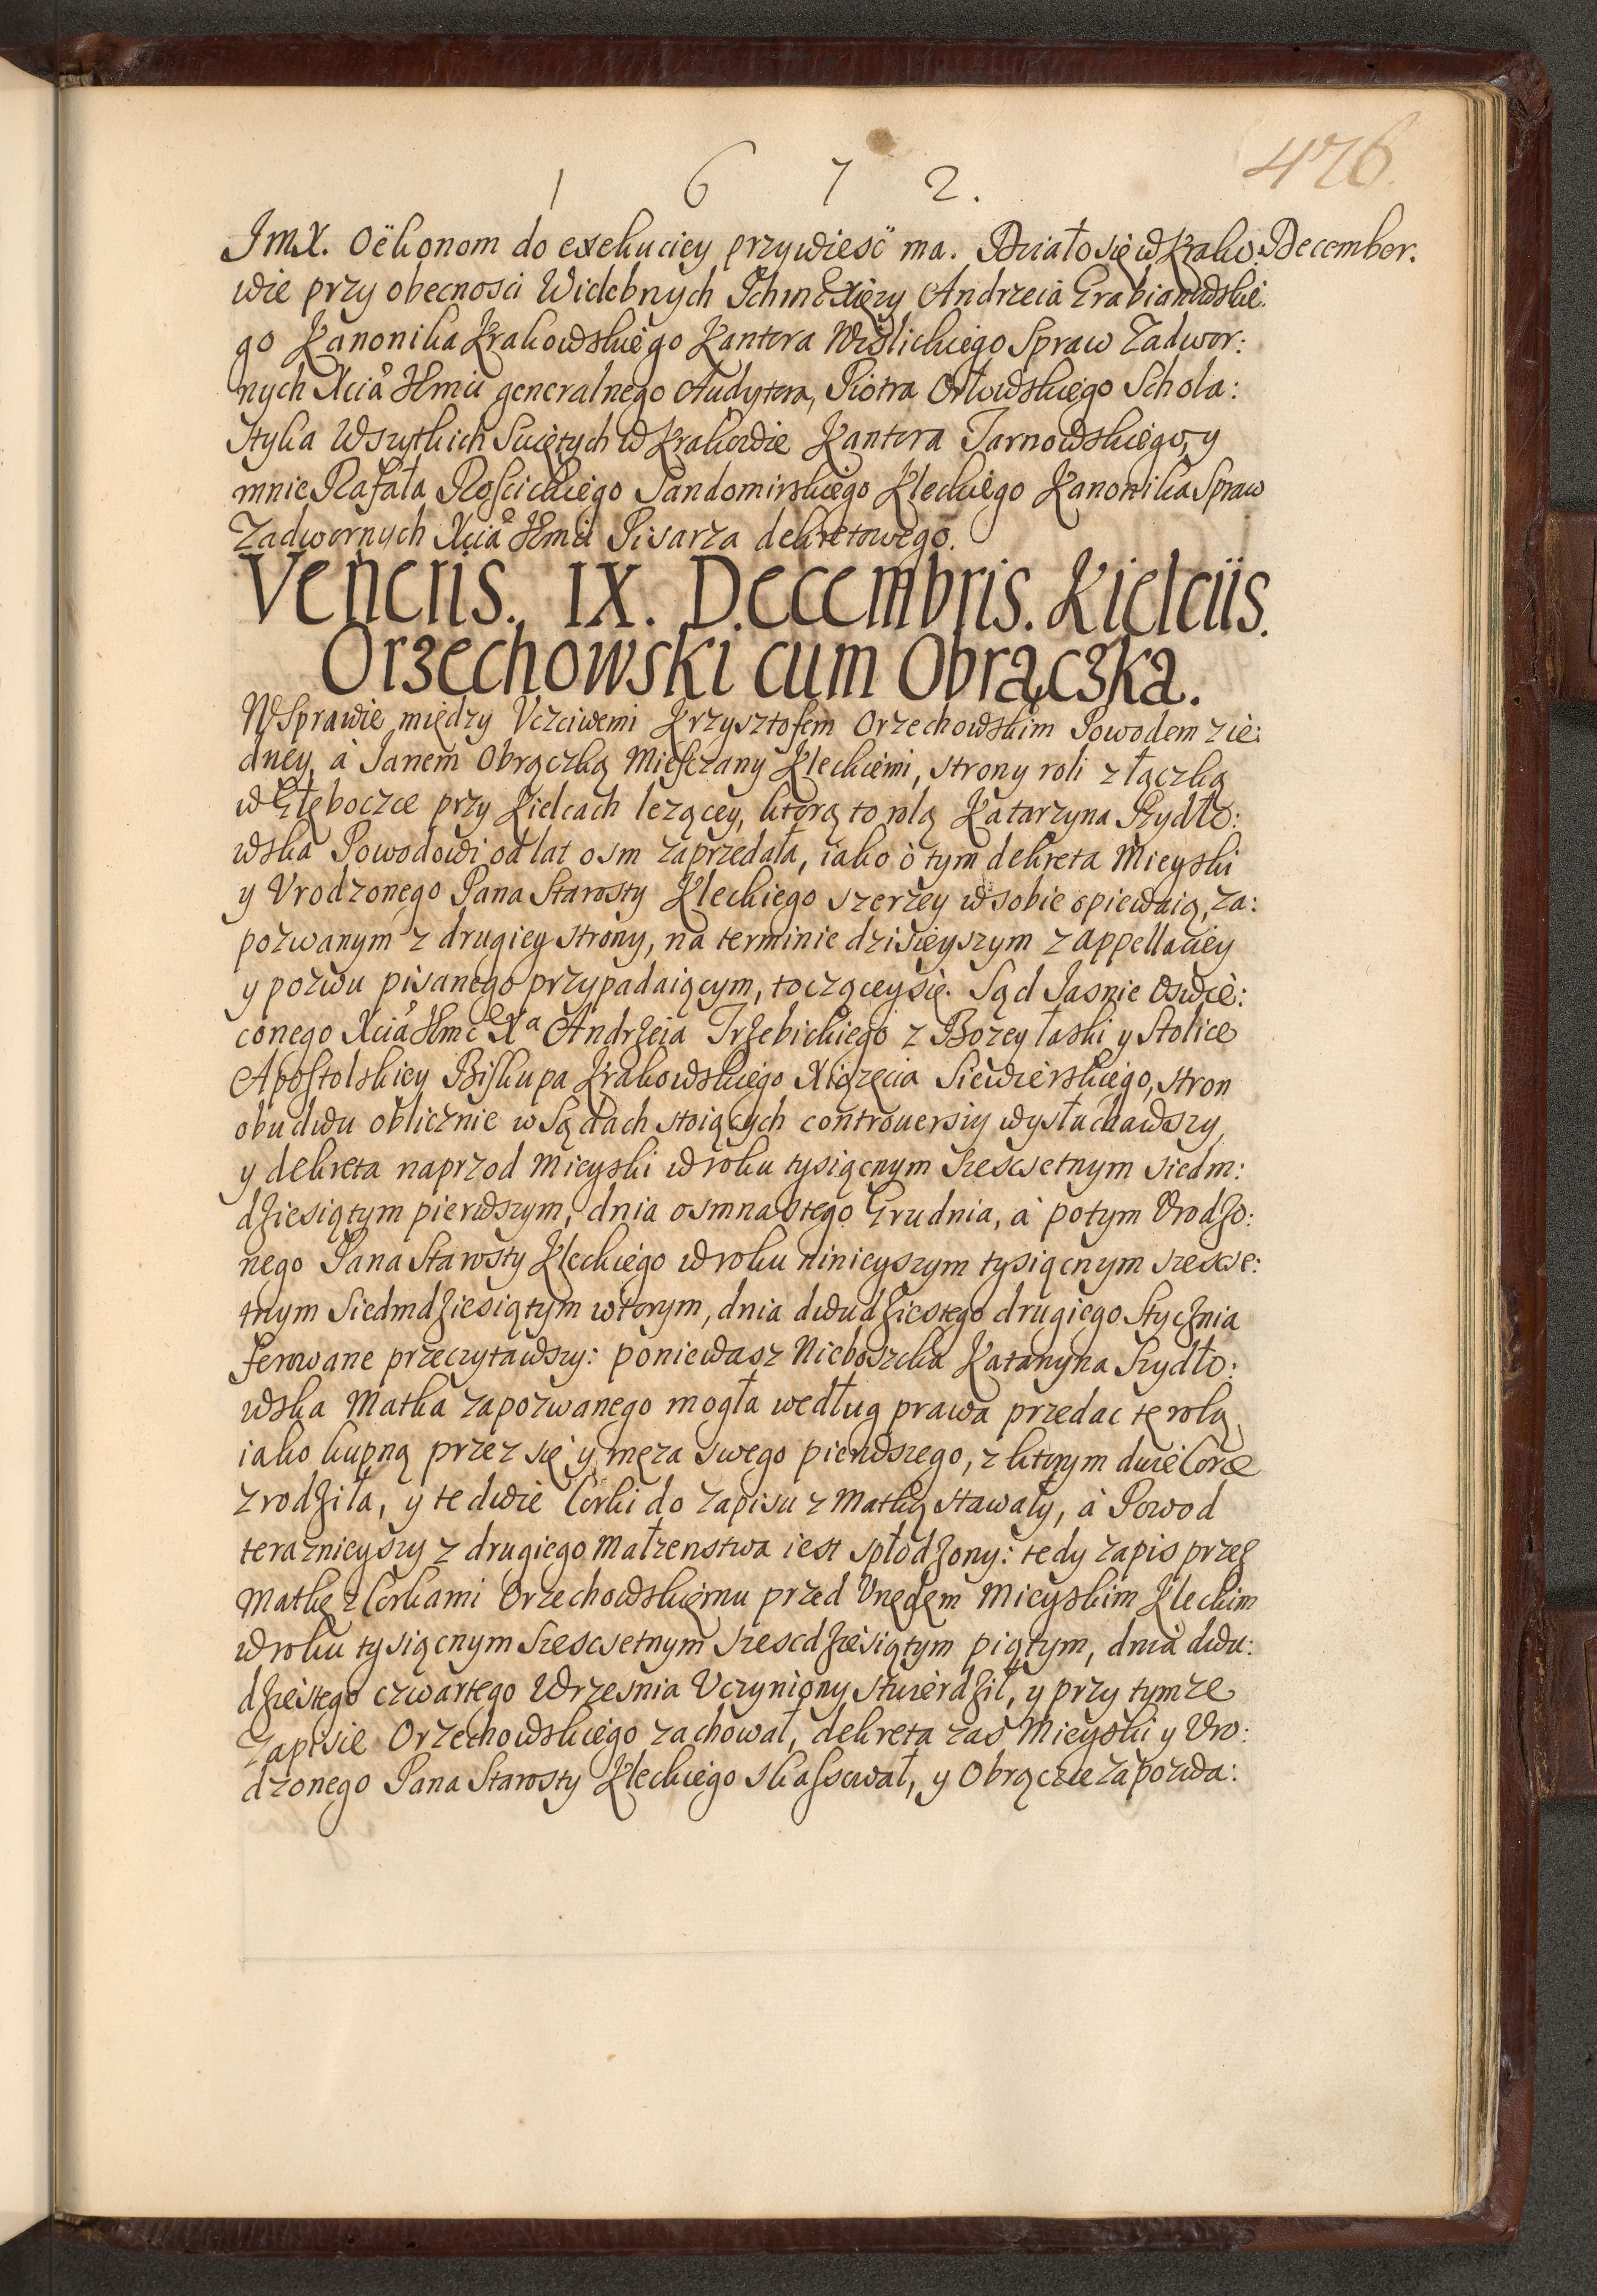 476.
1 6 7 2.
JmX. Oëkonom do exekuciey przywiesć ma. Działo się w Krako: December.
wie przy obecnosci Wielebnych Ichmć Xięży Andrzeia Grabianowskie:
go Kanonika Krakowskiego Kantora Wislickiego Spraw Zadwor:
nych Xcia Jmci generalnego Audytora, Piotra Orłowskiego Schola:
styka Wszytkich Swiętych w Krakowie Kantora Tarnowskiego, y
mnie Rafała Rościckiego Sandomirskiego Kleckiego Kanonika Spraw
Zadwornych Xcia Jmci Pisarza dekretowego.
Veneris. IX. Decembris. Kielciis.
Orzechowski cum Obrączka.
W Sprawie między Vczciwemi Krzysztofem Orzechowskim Powodem z ie:
dney, à Janem Obrączką Mieszczany Kleckiemi, strony roli z łączką
w Głęboczce przy Kielcach lezącey, ktorą to rolą Katarzyna Szydło:
wska Powodowi od lat osm zaprzedała, iako o tym dekreta Mieyski
y Vrodzonego Pana Starosty Kleckiego szerzey w sobie opiewaią, za:
pozwanym z drugiey strony, na terminie dzisieyszym z appellaciey
y pozwu pisanego przypadaiącym, toczącey się. Sąd Jasnie Oswie:
conego Xcia Jmci Xa Andrzeia Trzebickiego z Bozey łaski y Stolice
Apostolskiey Biskupa Krakowskiego Xiązęcia Siewierskiego, stron
obudwu oblicznie w Sądach stoiących controuersiy wysłuchawszy,
y dekreta naprzod Mieyski w roku tysiącnym szescsetnym siedm:
dziesiątym pierwszym, dnia osmnastego Grudnia, à potym Vrodzo:
nego Pana Starosty Kleckiego w roku ninieyszym tysiącnym szescse:
tnym Siedmdziesiątym wtorym, dnia dwudziestego drugiego Stycznia
ferowane przeczytawszy: poniewasz Nieboszcka Katarzyna Szydło:
wska Matka zapozwanego mogła według prawa przedac tę rolą,
iako kupną przez się y męza swego pierwszego, z ktorym dwie Corce
zrodziła, y te dwie Corki do zapisu z Matką stawały, à Powod
teraznieyszy z drugiego Małzenstwa iest spłodzony: tedy zapis przez
Matkę z Corkami Orzechowskiemu przed Vrzędem Mieyskim Kleckim
w roku tysiącnym Szescsetnym szescdziesiątym piątym, dnia dwu:
dziestego czwartego Wrzesnia Vczyniony stwierdził, y przy tymze
Zapisie Orzechowskiego zachował, dekreta zas Mieyski y Vro:
dzonego Pana Starosty Kleckiego skassował, y Obrączce zapozwa: